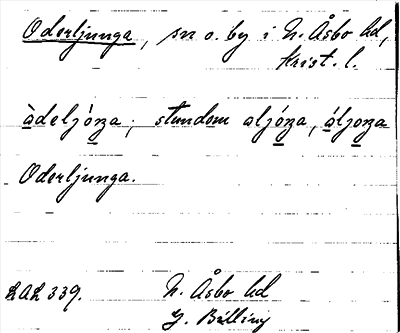 Oderljunga, sn o. by i N. Åsbo hd,
Krist. l.
àdeljóṉa; stundom aljóṉa, áljoṉa
Oderljunga.
LAL 339. N. Åsbo hd
G. Billing